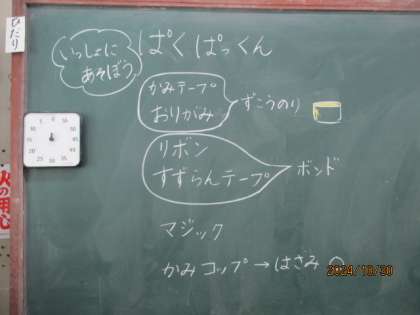 ひだり
いっしょに
あそぼう
ぱくぱっくん
かみテープ
おりがみ
ずこうのり
リボン
すずらんテープ
ボンド
マジック
かみコップ→はさみ
火の用心
2024/10/30